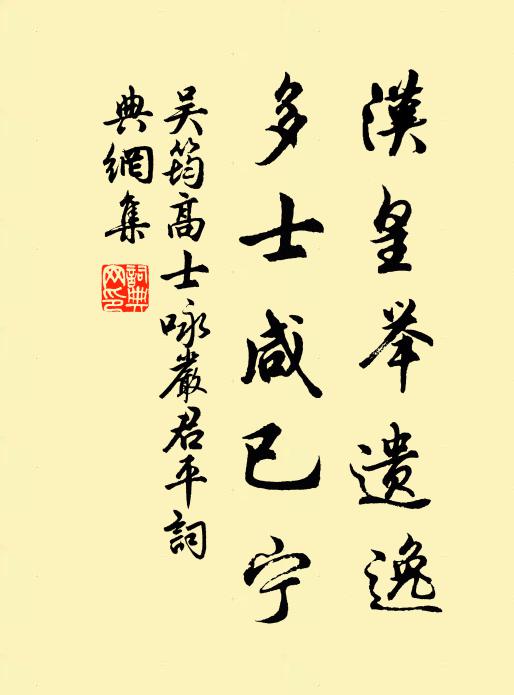 漢皇举遗逸
多士咸已宁
吴筠高士咏嚴君平詞
典網集
詞典網印